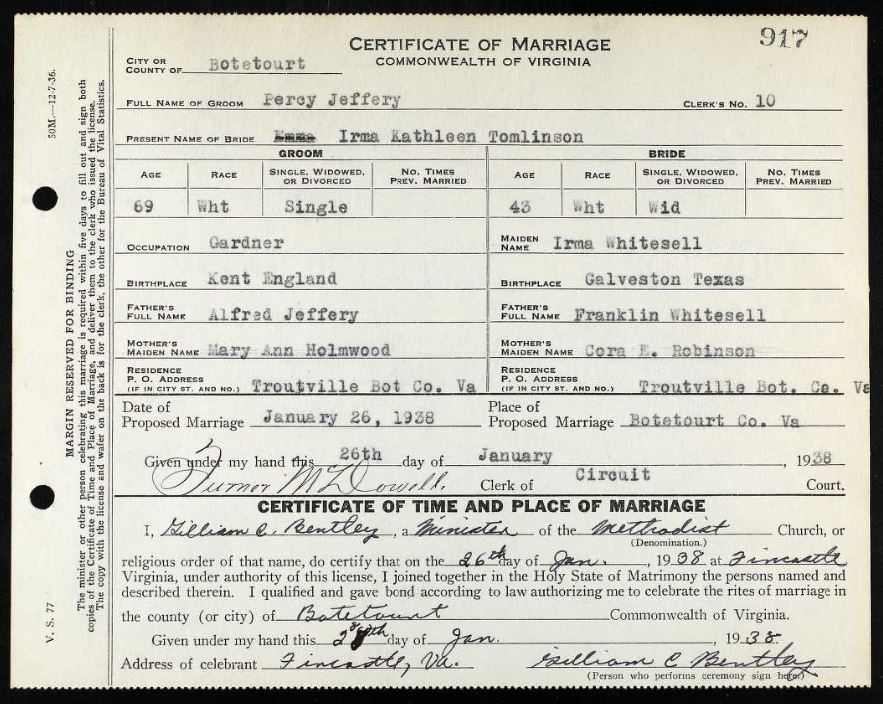 917
CERTIFICATE OF MARRIAGE
COMMONWEALTH OF VIRGINIA
CITY OR
COUNTY OF Botetourt
FULL NAME OF GROOM Percy Jeffery CLERK'S NO. 10
PRESENT NAME OF BRIDE Emma Irma Kathleen Tomlinson
GROOM BRIDE
AGE RACE SINGLE, WIDOWED, OR DIVORCED NO. TIMES PREV. MARRIED AGE RACE SINGLE, WIDOWED, OR DIVORCED NO. TIMES PREV. MARRIED
69 Wht Single 43 Wht Wid
OCCUPATION Gardner MAIDEN NAME Irma Whitesell
BIRTHPLACE Kent England BIRTHPLACE Galveston Texas
FATHER'S FULL NAME Alfred Jeffery FATHER'S FULL NAME Franklin Whitesell
MOTHER'S MAIDEN NAME Mary Ann Holmwood MOTHER'S MAIDEN NAME Cora E. Robinson
RESIDENCE P. O. ADDRESS (IF IN CITY ST. AND NO.) Troutville Bot Co. Va RESIDENCE P. O. ADDRESS (IF IN CITY ST. AND NO.) Troutville Bot. Co. Va
Date of Proposed Marriage January 26, 1938 Place of Proposed Marriage Botetourt Co. Va
Given under my hand this 26th day of January, 1938
Turner McDowell. Clerk of Circuit Court.
CERTIFICATE OF TIME AND PLACE OF MARRIAGE
I, Gilliam C. Bentley, a Minister of the Methodist Church, or
(Denomination.)
religious order of that name, do certify that on the 26th day of Jan., 1938 at Fincastle
Virginia, under authority of this license, I joined together in the Holy State of Matrimony the persons named and
described therein. I qualified and gave bond according to law authorizing me to celebrate the rites of marriage in
the county (or city) of Botetourt Commonwealth of Virginia.
Given under my hand this day of Jan., 1938.
Address of celebrant Fincastle, Va. Gilliam C Bentley
(Person who performs ceremony sign here.)
50M.—12-7-36.
V. S. 77
MARGIN RESERVED FOR BINDING
The minister or other person celebrating this marriage is required within five days to fill out and sign both
copies of the Certificate of Time and Place of Marriage, and deliver them to the clerk who issued the license.
The copy with the license and waiver on the back is for the clerk, the other for the Bureau of Vital Statistics.